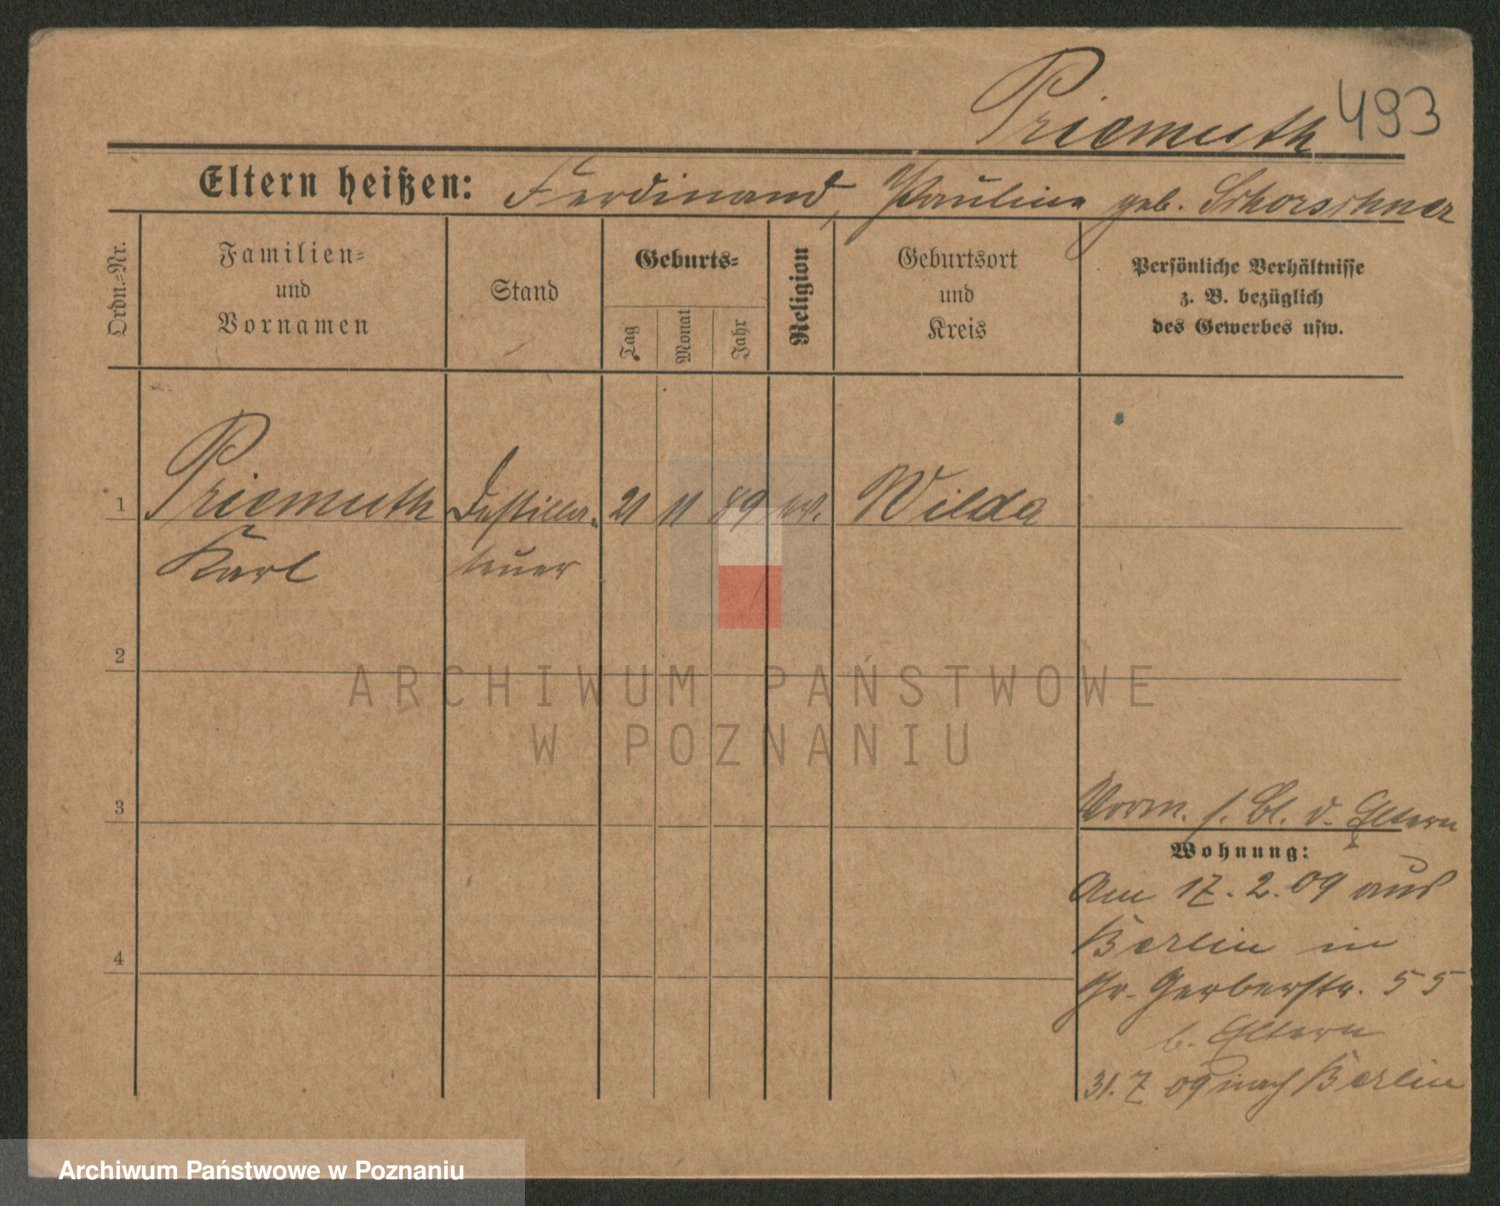 Priemuth 493
Eltern heißen: Ferdinand, Pauline geb. Schorschner
Ordn.-Nr.
Familien-
und
Vornamen
Stand
Geburts-
Tag
Monat
Jahr
Religion
Geburtsort
und
Kreis
Persönliche Verhältnisse
z. B. bezüglich
des Gewerbes usw.
1 Priemuth Destilla- 21 11 89 ev. Wilda
Karl teur
2
3
4
Vorm. s. Bl. d. Eltern
Wohnung:
Am 17.2.09 aus
Berlin in
Gr. Gerberstr. 55
b. Eltern
31.7 09 nach Berlin
ARCHIWUM PAŃSTWOWE
W POZNANIU
Archiwum Państwowe w Poznaniu